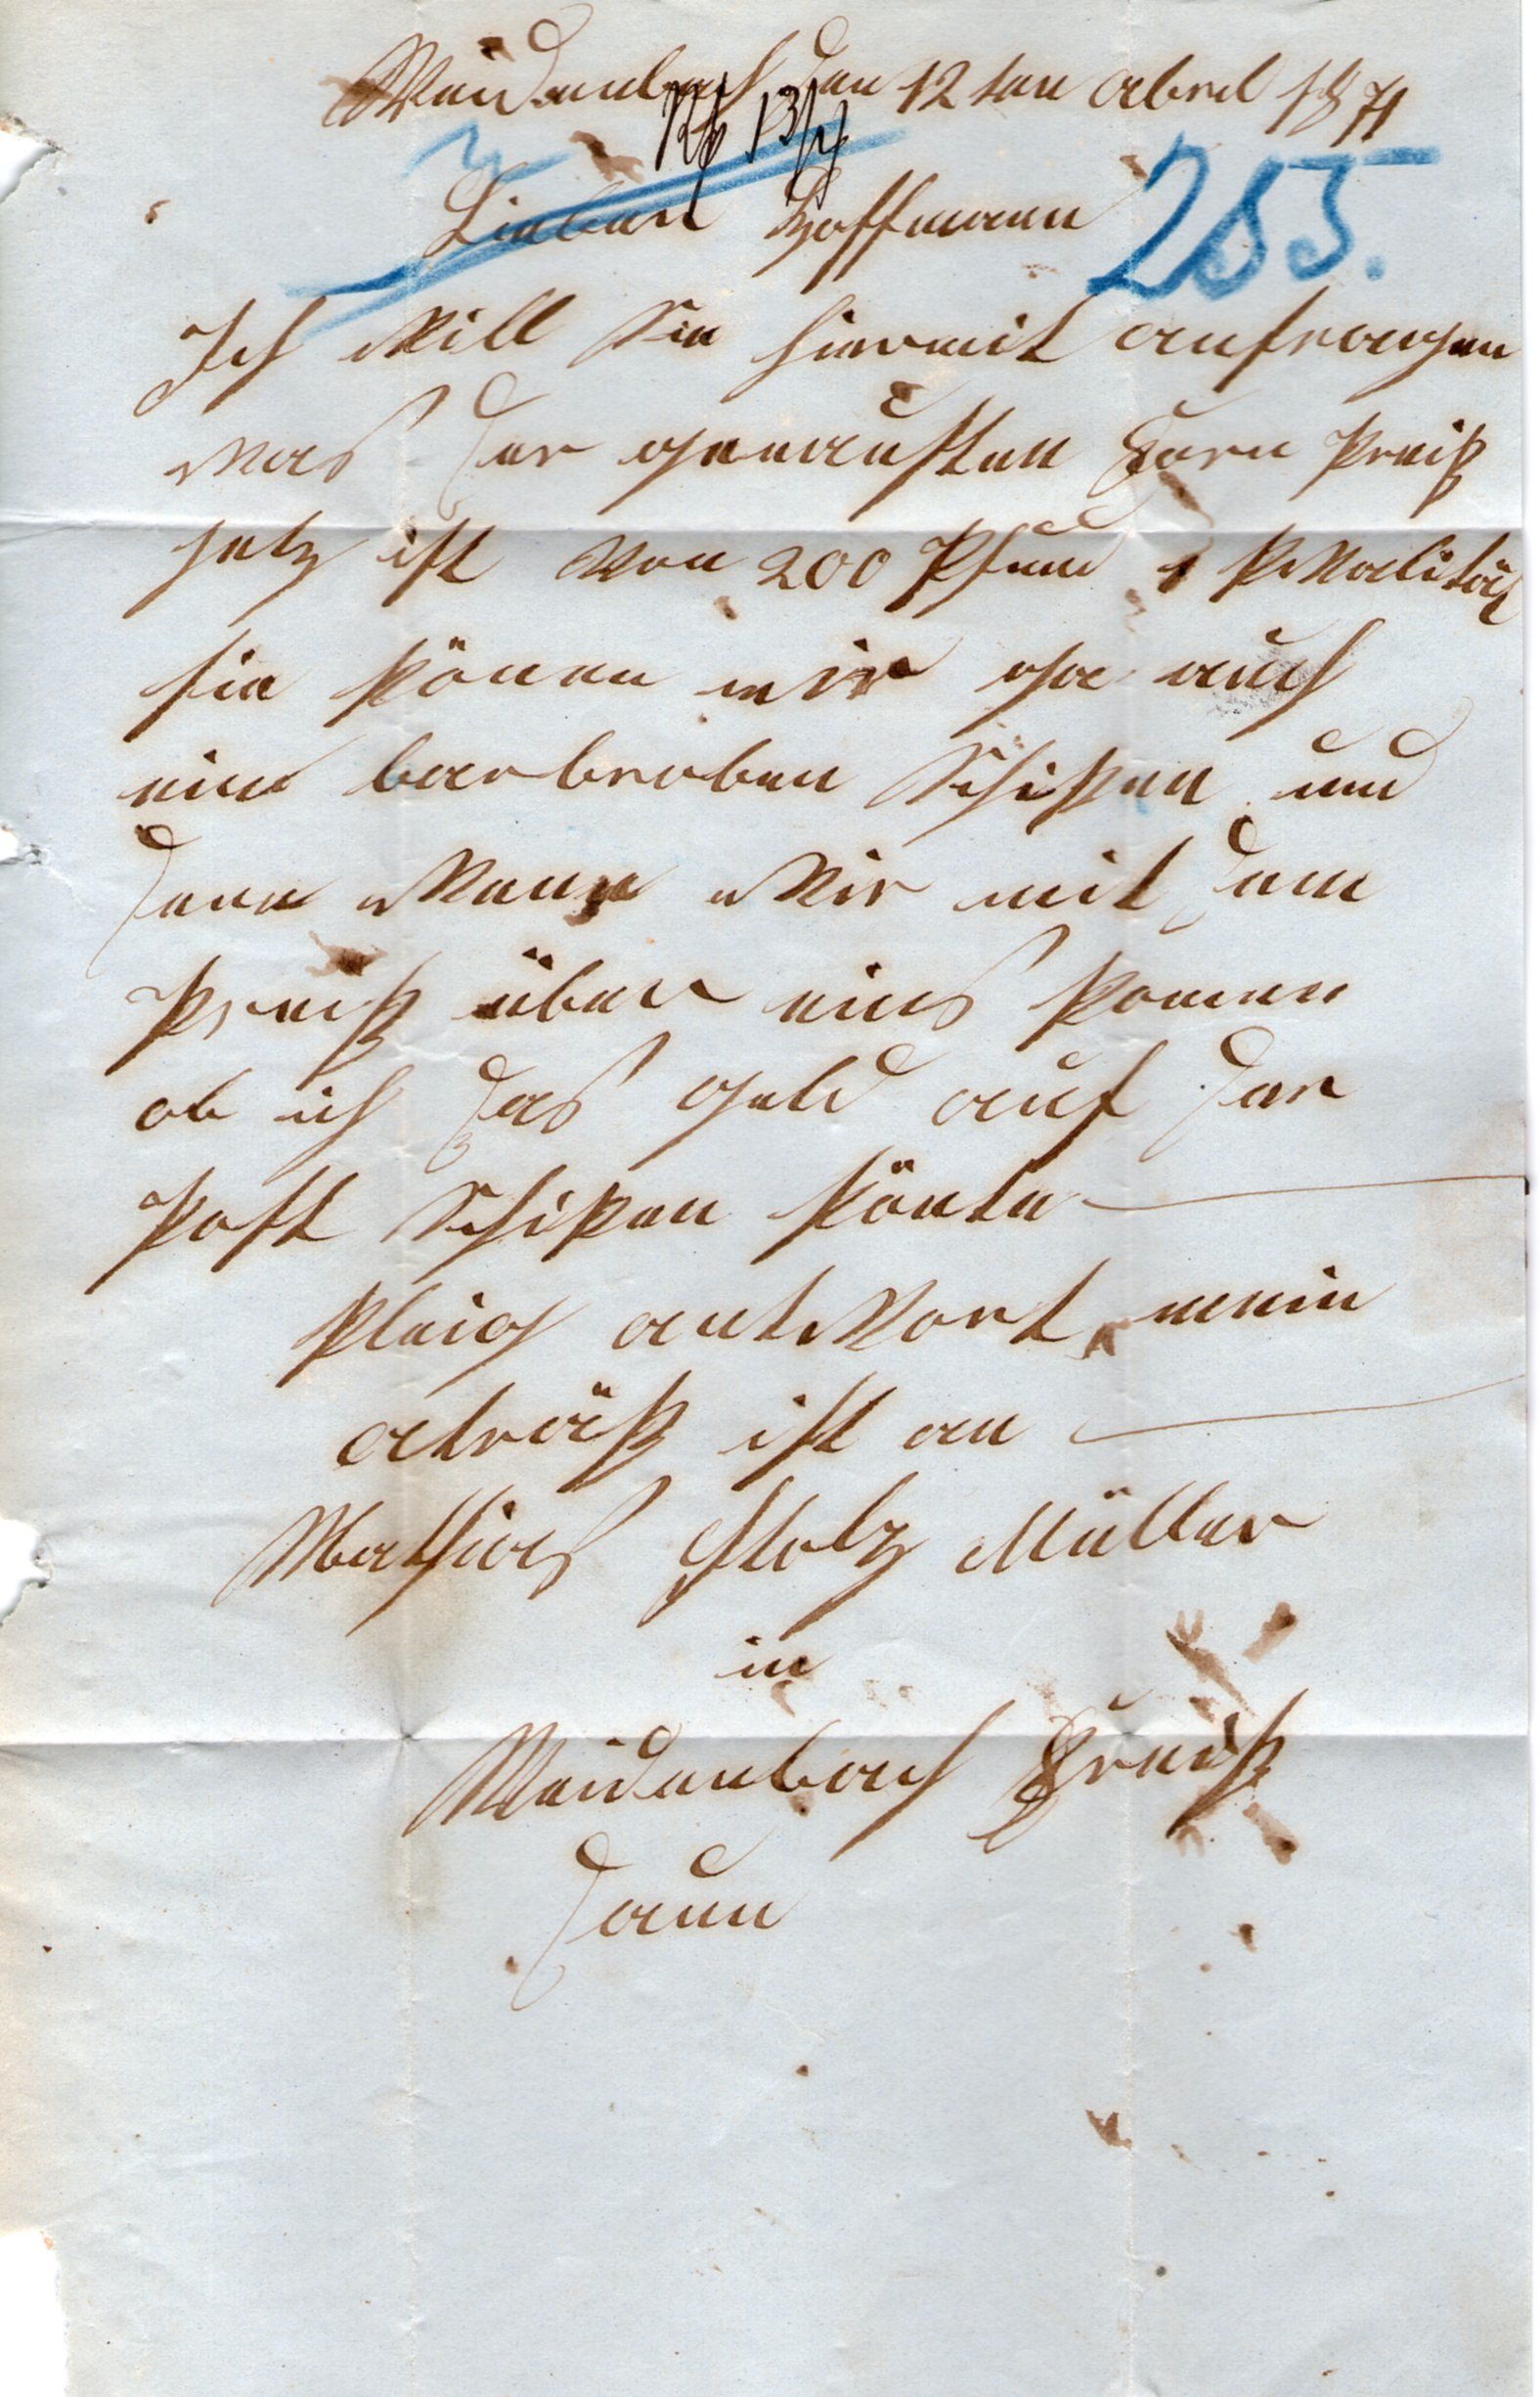 Weidenbach den 12 ten abrel 1871
13/4
Lieber Hoffmann
255.
Ich Will Sie hiermit anfragen
was der genausten Preiß
jetz ist Von 200 Pfund 1 kwalität
sie könen mir ja auch
ein bar broben Schiken und
dann Wenn Wir mit dem
Preiß über eins komen
ob ich das geld auf der
Post Schiken könte
gleig antwort mein
aträß ist an
Mathias Stolz Müller
in
Weidenbach Kreiß
Daun